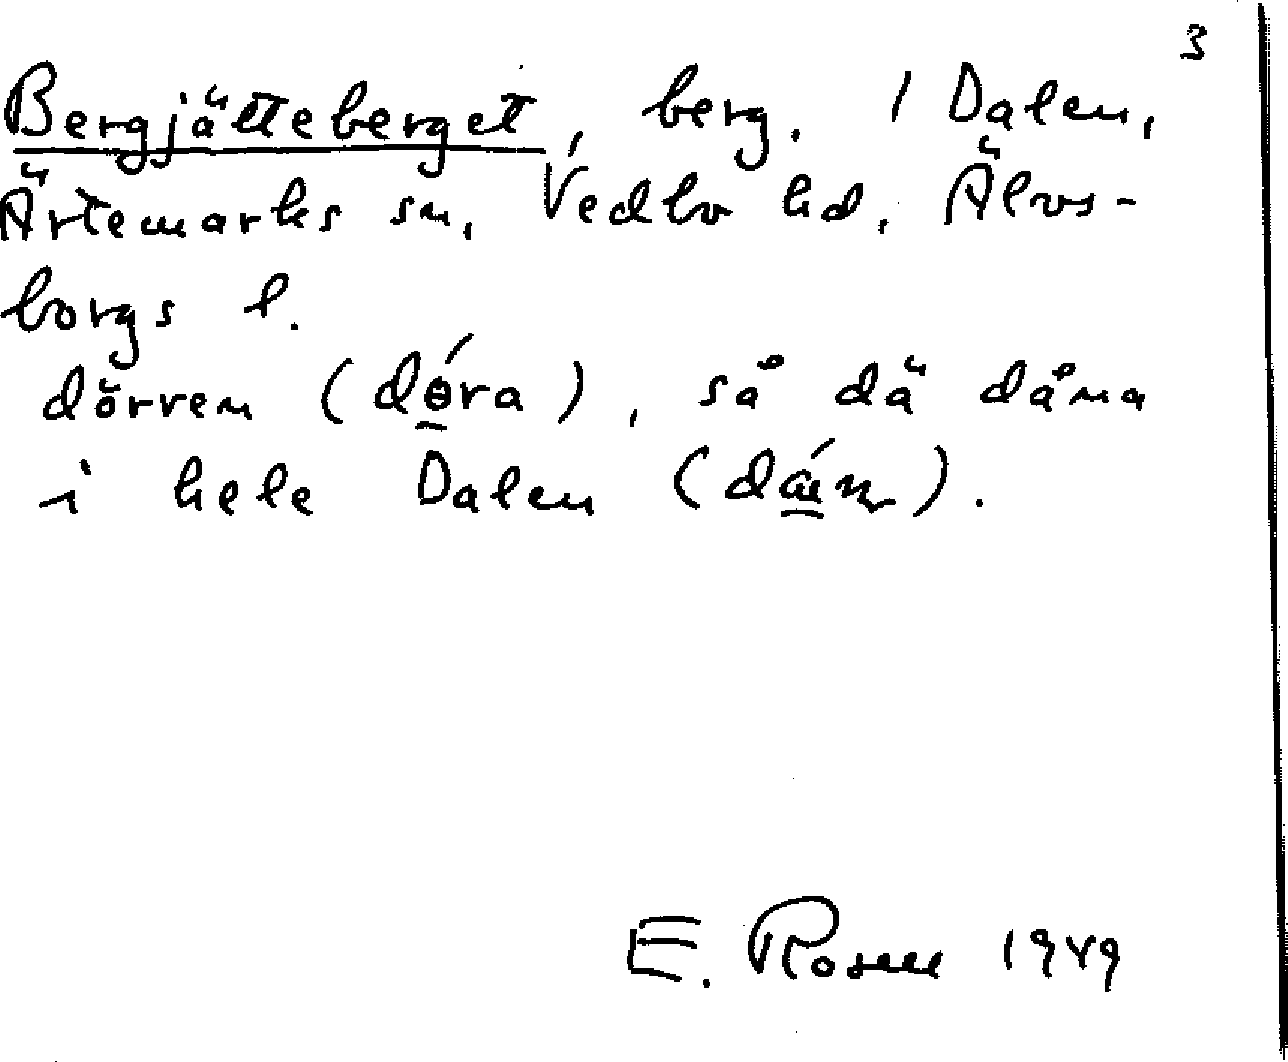 3
Bergjätteberget, berg. I Dalen,
Ärtemarks sn, Vedbo hd, Älvs-
borgs l.
dörren (dɵ́ra), så dä dåna
i hele Dalen (dáɛn).
E. Rosell 1949